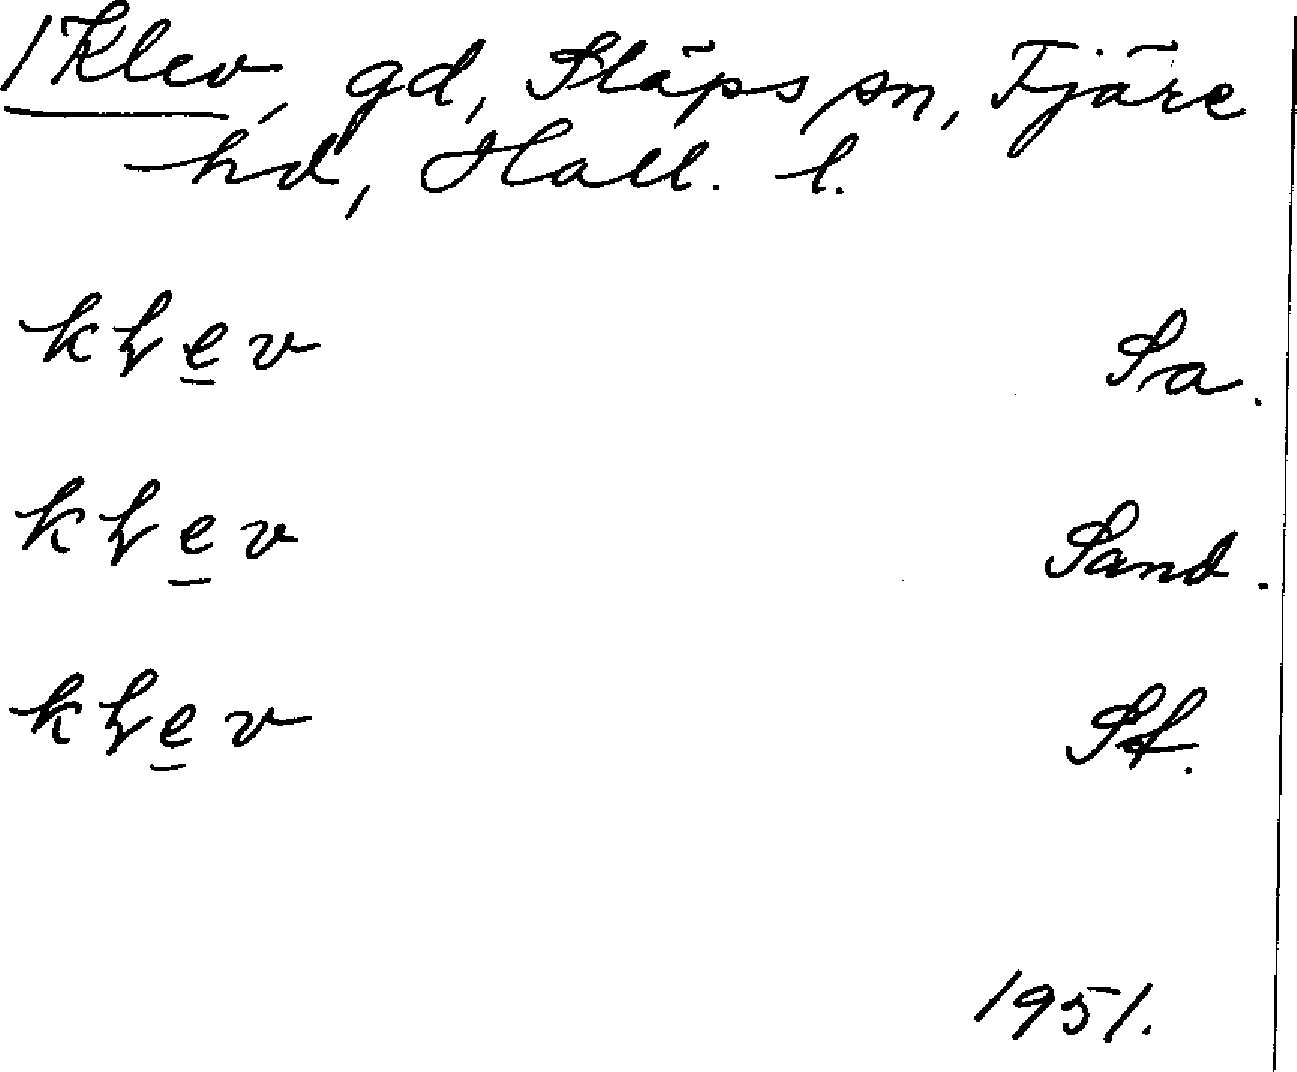 Klev, gd, Släps sn, Fjäre
hd, Hall. l.
kḷe̲v Sa.
kḷe̲v Sand.
kḷe̲v
1951.